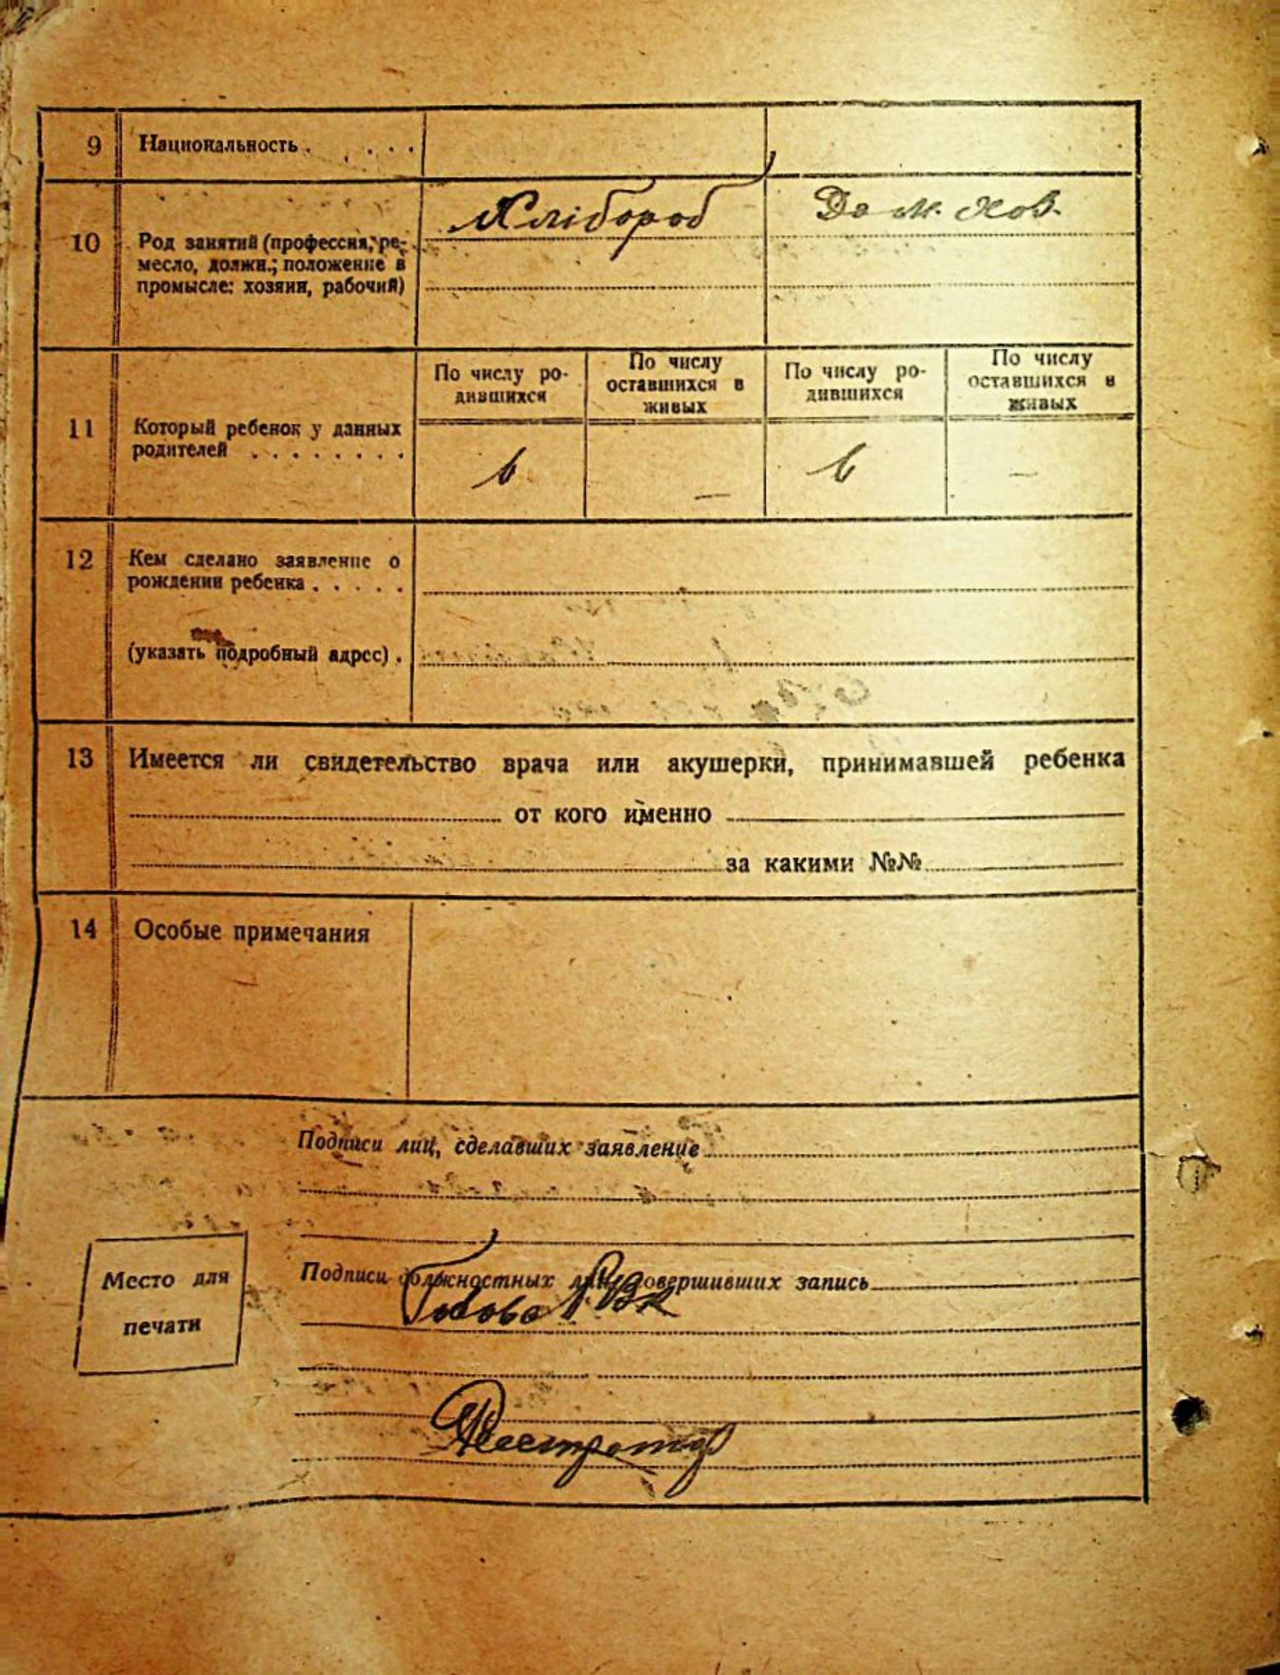 9 Национальность . . . . .
Хлібороб Дом. хоз.
10 Род занятий (профессия, ре-
месло, должн.; положение в
промысле: хозяин, рабочий)
11 Который ребенок у данных
родителей . . . . . . . .
По числу ро-
дившихся
По числу
оставшихся в
живых
По числу ро-
дившихся
По числу
оставшихся в
живых
6 — 6 —
12 Кем сделано заявление о
рождении ребенка . . . . .
(указать подробный адрес) .
13 Имеется ли свидетельство врача или акушерки, принимавшей ребенка
от кого именно
за какими №№
14 Особые примечания
Подписи лиц, сделавших заявление
Место для
печати
Подписи должностных лиц, совершивших запись
Голова